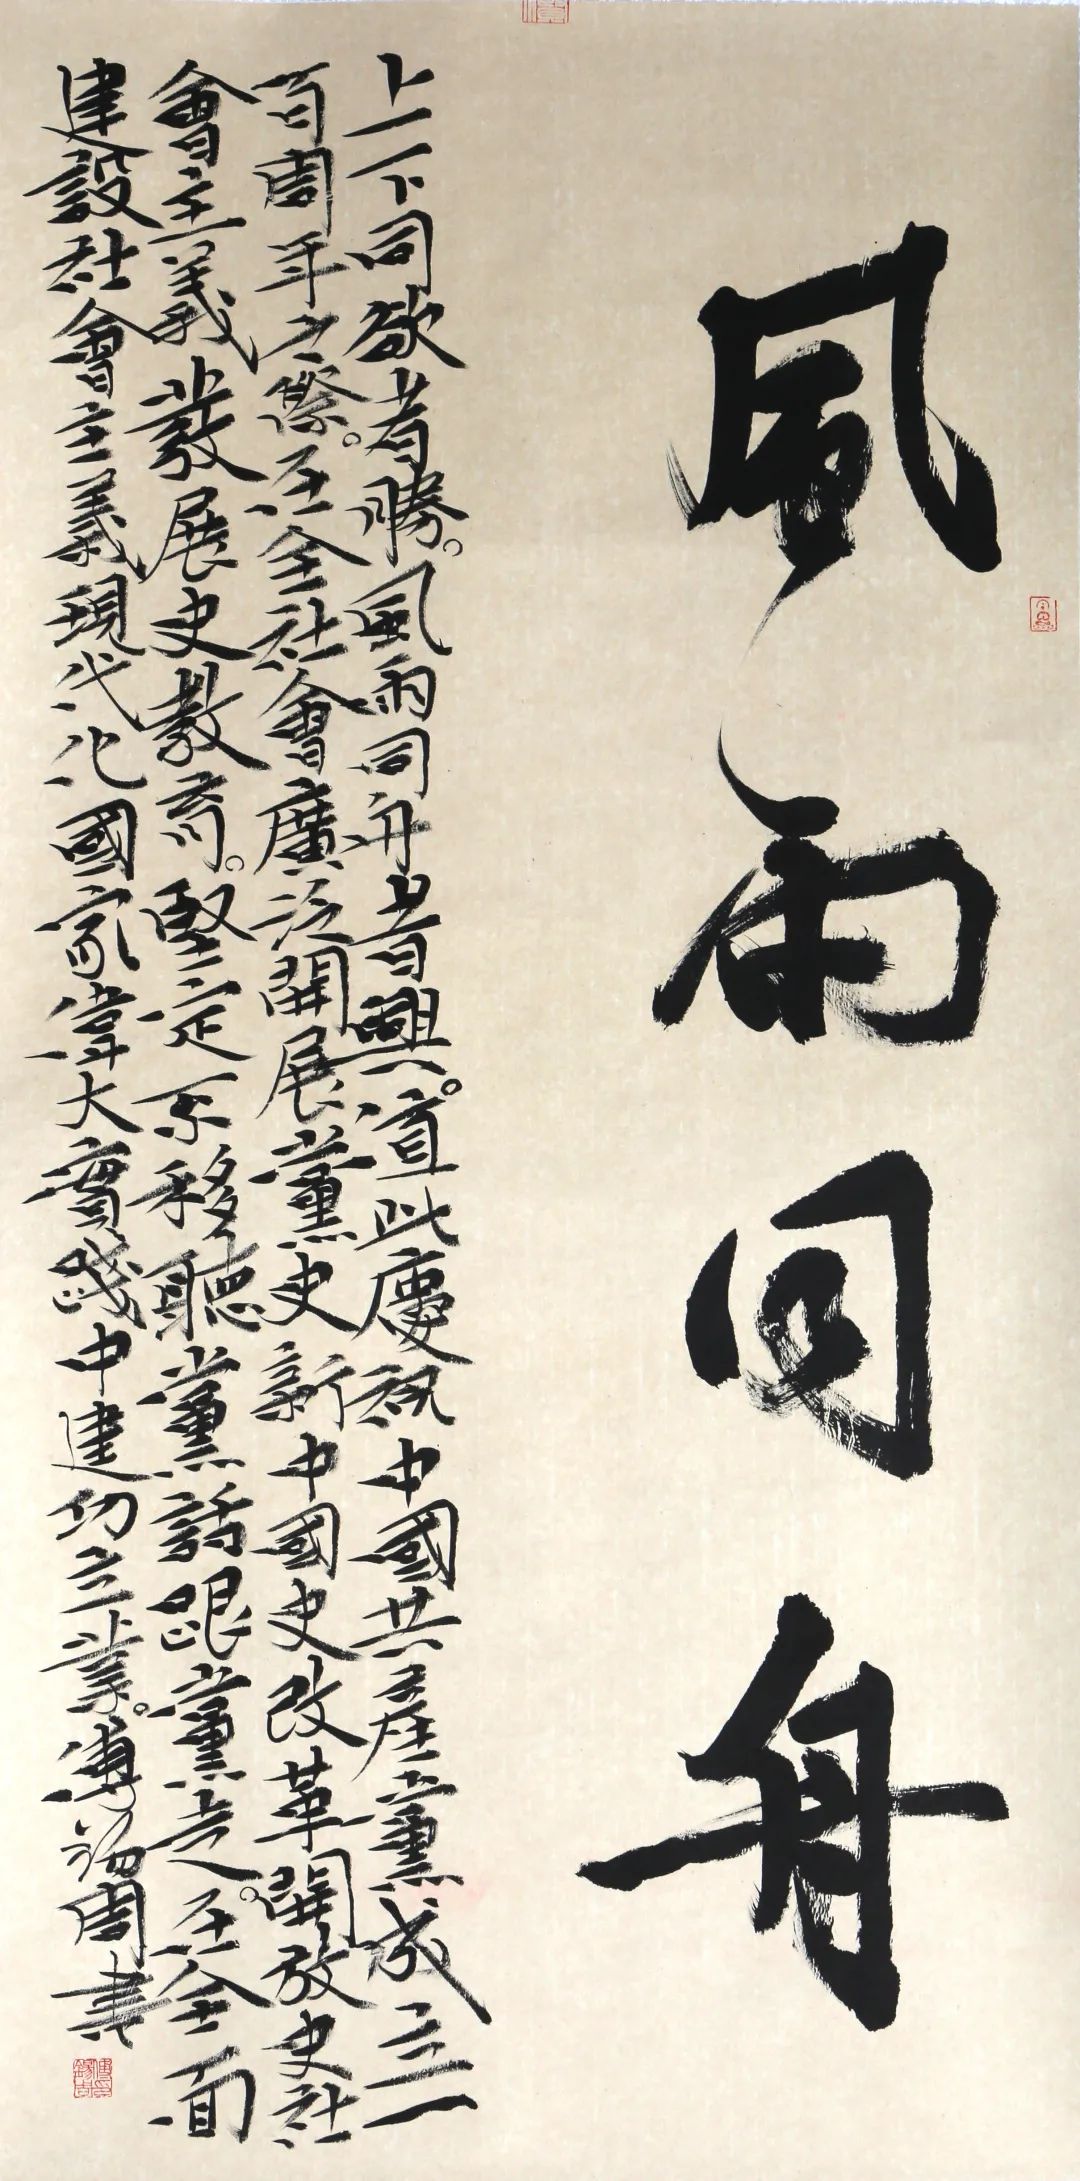 風雨同舟
上下同欲者勝。風雨同舟者興。值此慶祝中國共產黨成立一
百周年之際。在全社會廣泛開展黨史新中國史改革開放史社
會主義發展史教育。堅定不移聽黨話跟黨走。在全面
建設社會主義現代化國家偉大實踐中建功立業。傅錫周書